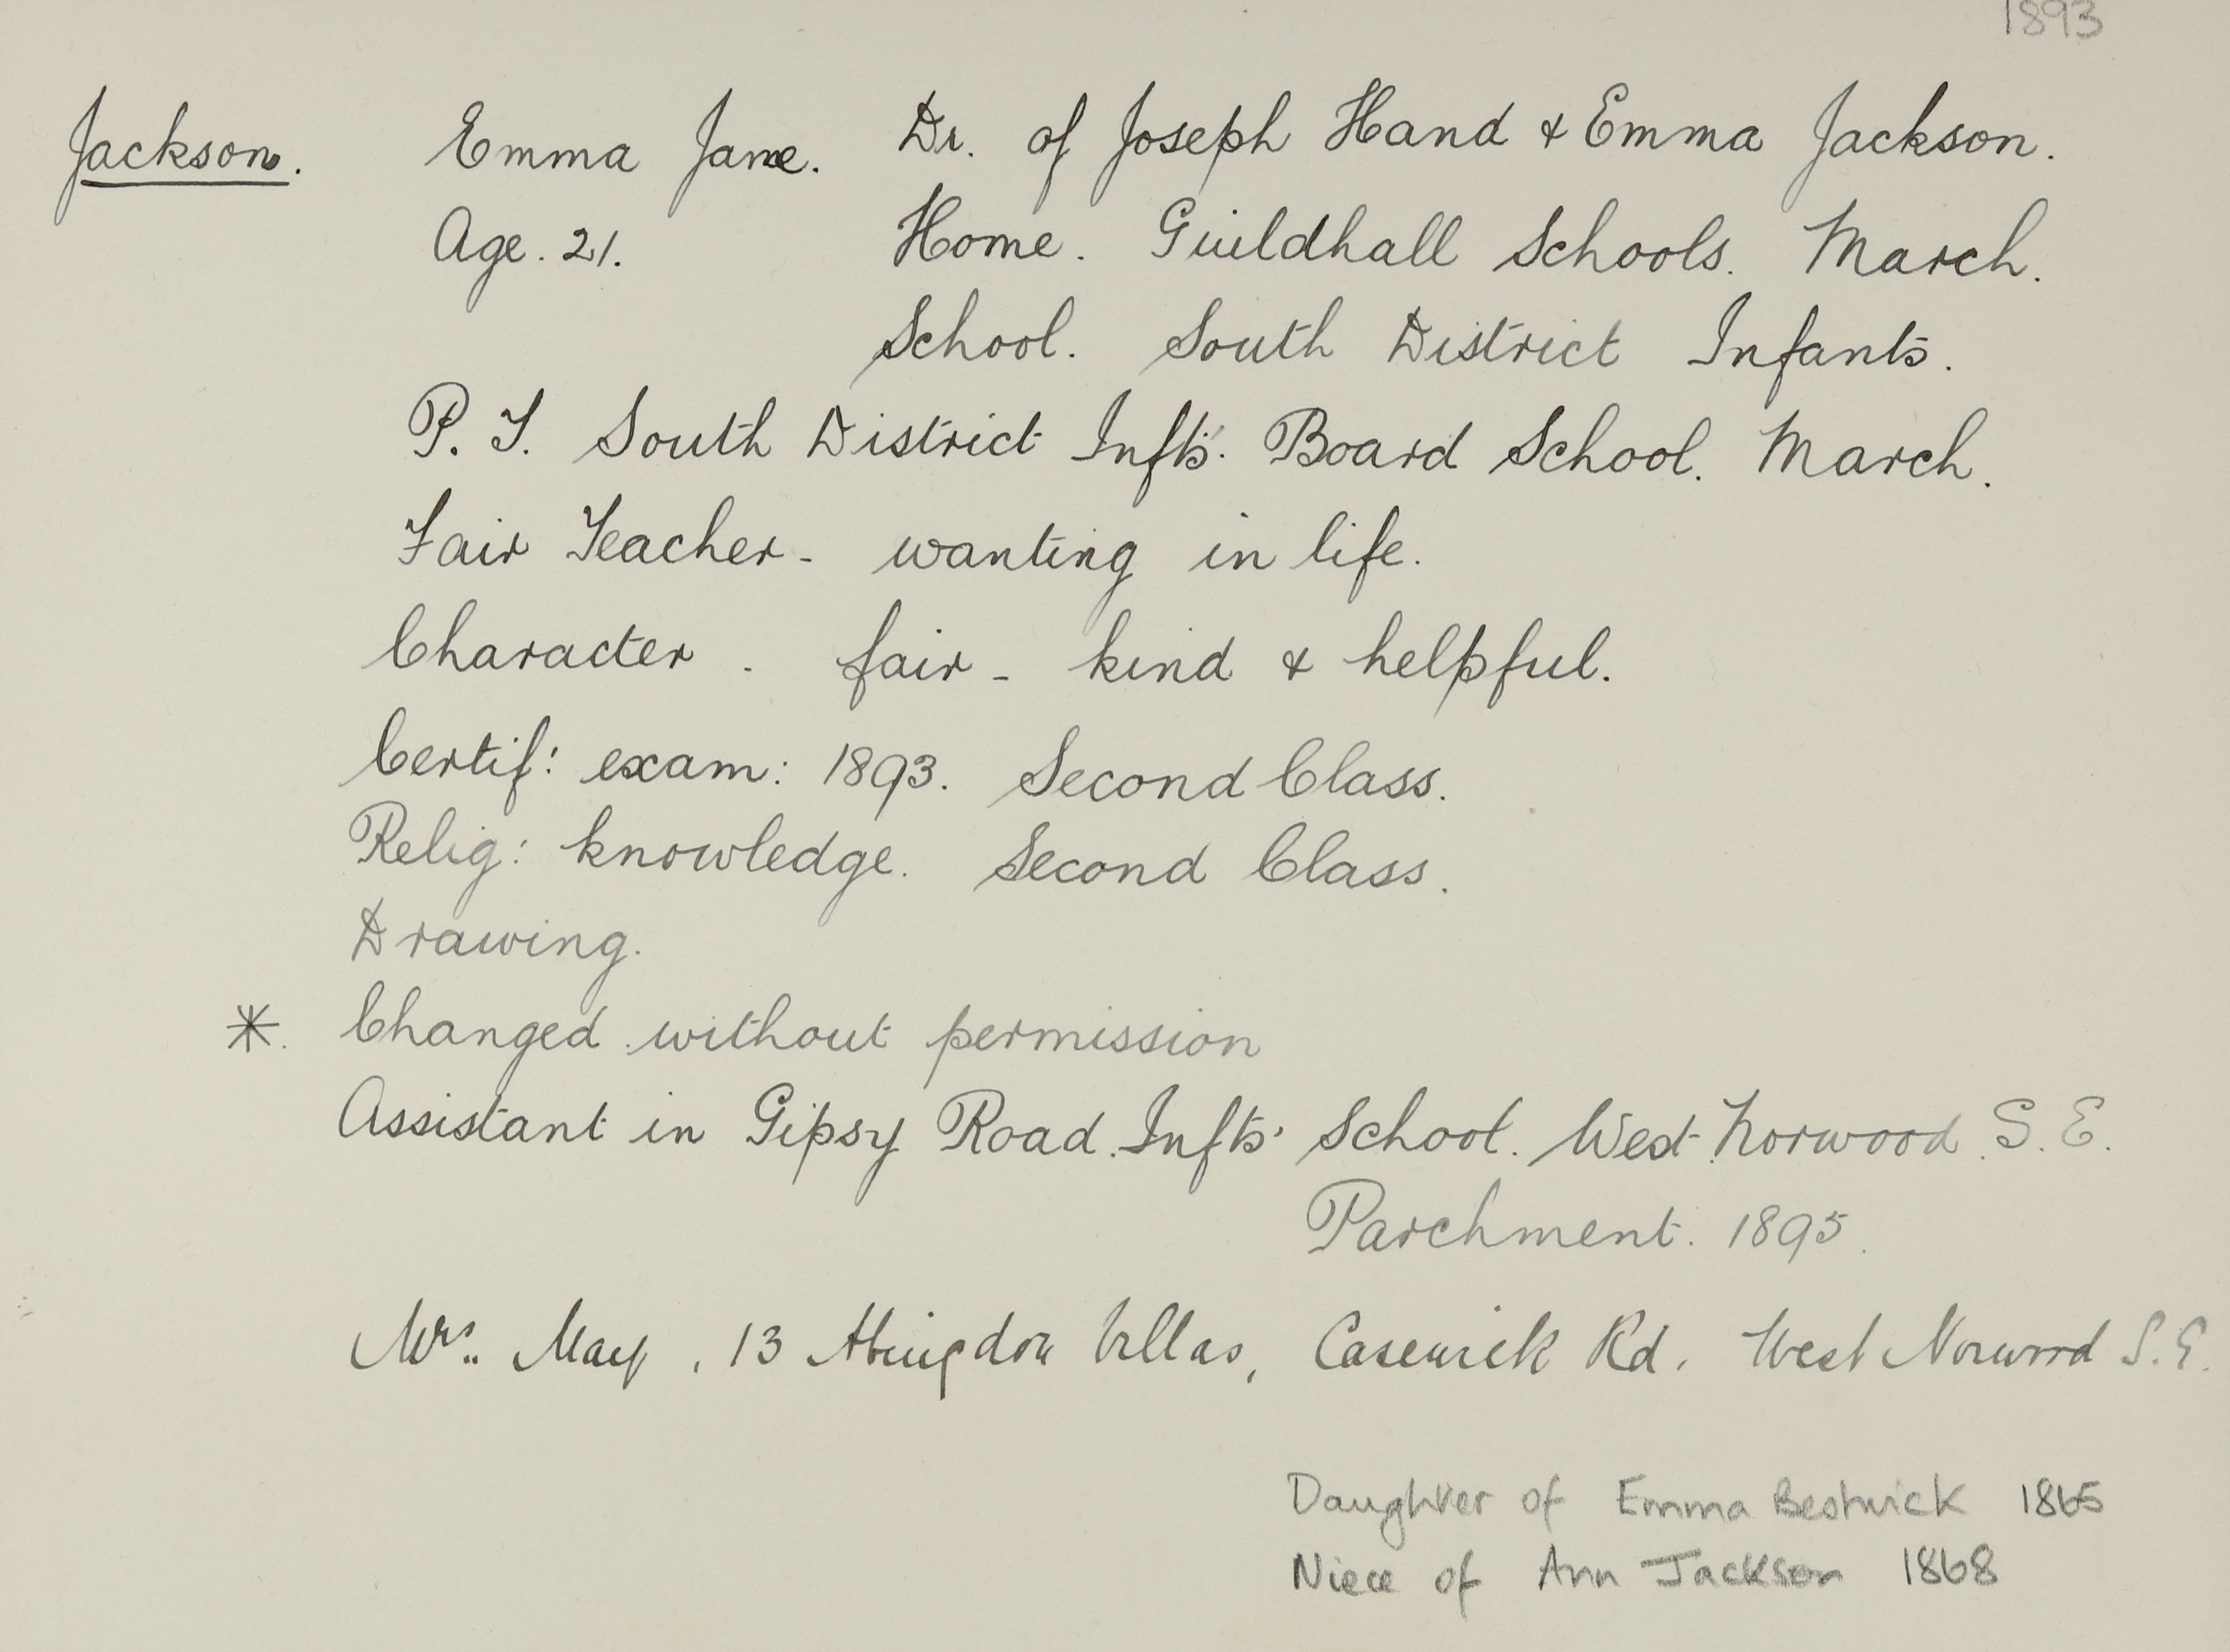 1893
Jackson. Emma Jane. Dr. of Joseph Hand & Emma Jackson.
Age. 21. Home. Guildhall Schools. March.
School. South District Infants.
P. T. South District Infts'. Board School. March.
Fair Teacher - wanting in life.
Character. fair - kind & helpful.
Certif: exam: 1893. Second Class.
Relig: knowledge. Second Class.
Drawing.
*. Changed without permission
Assistant in Gipsy Road. Infts' School. West Norwood. S. E.
Parchment. 1895.
Mrs. May, 13 Abingdon Villas, Casewick Rd. West Norwood S.E.
Daughter of Emma Bestwick 1865
Niece of Ann Jackson 1868